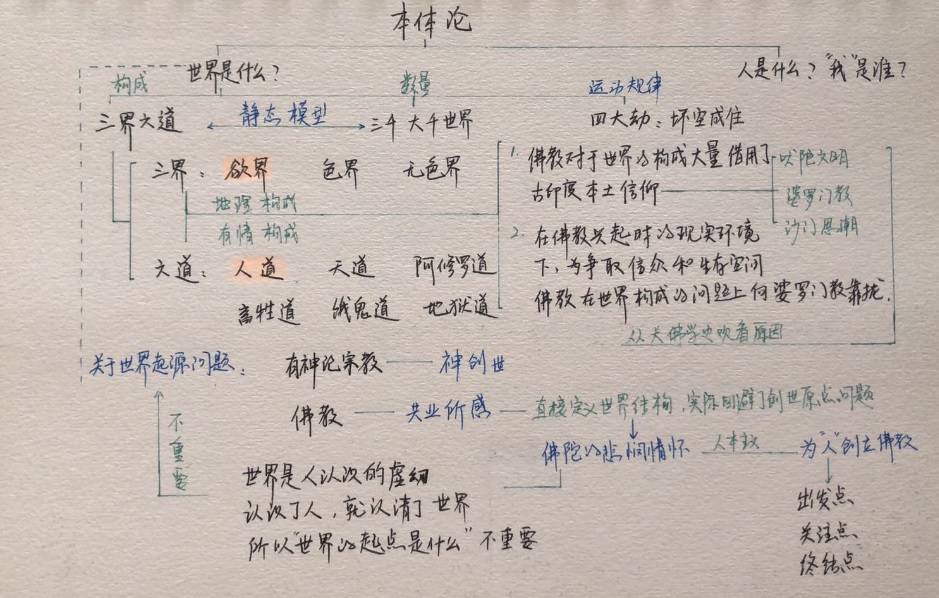 本体论
世界是什么？
人是什么？“我”是谁？
构成
数量
运动规律
三界六道
静态模型
三千大千世界
四大劫：坏空成住
三界：欲界 色界 无色界
地理构成
有情构成
六道：人道 天道 阿修罗道
畜牲道 饿鬼道 地狱道
1. 佛教对于世界的构成大量借用了
古印度本土信仰
吠陀文明
婆罗门教
沙门思潮
2. 在佛教兴起时的现实环境
下，为争取信众和生存空间
佛教在世界构成的问题上向婆罗门教靠拢.
从大佛学史观看原因
关于世界起源问题：
有神论宗教 神创世
佛教 共业所感 直接定义世界结构，实际回避了创世原点问题
不重要
佛陀的悲悯情怀 人本主义 为“人”创立佛教
世界是人认识的虚幻
认识了人，就认清了世界
所以“世界的起点是什么”不重要
出发点
关注点
终结点